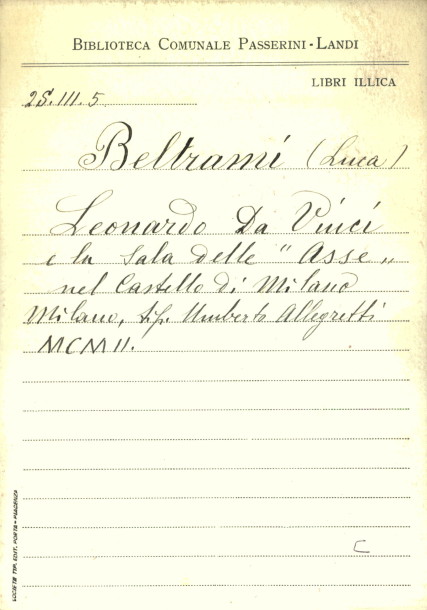 BIBLIOTECA COMUNALE PASSERINI-LANDI
LIBRI ILLICA
2S.III.5
Beltrami (Luca)
Leonardo Da Vinci
e la Sala delle "Asse"
nel Castello di Milano
Milano, tip. Umberto Allegretti
MCMII.
C
SOCIETÀ TIP. EDIT. PORTA - PIACENZA